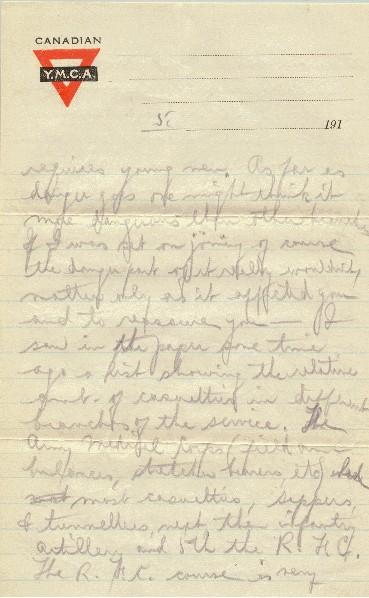 CANADIAN
Y.M.C.A.
5.
191
requires young men. As far as
danger goes one might think it
more dangerous than other branches
If I was set on joining of course
the danger part of it really wouldn't
matter only as it affected you
and to reassure you — I
saw in the paper some time
ago a list showing the relative
amt. of casualties in different
branches of the service. The
Army Medical Corps (field am-
bulances, stretcher bearers, etc) had
most casualties, sappers,
& tunnellers, next then infantry
artillery and 5th the R.F.C.
The R.F.C. course is very